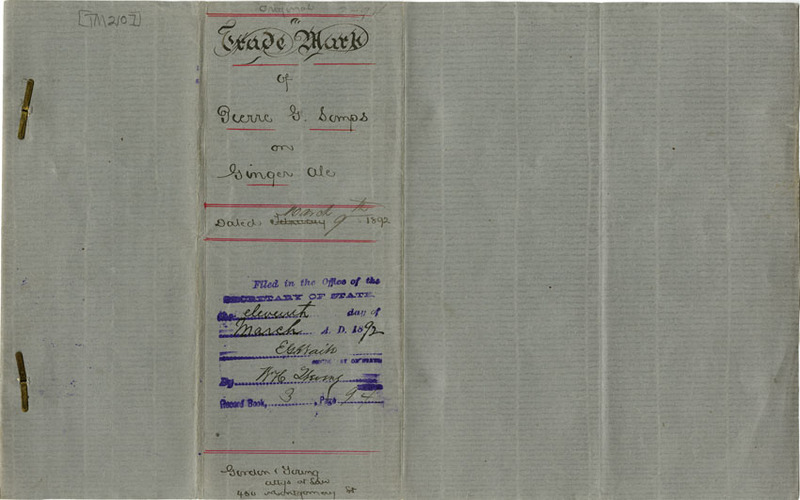 [TM2107]
Original
Trade Mark
of
Pierre G. Somps
on
Ginger Ale
Dated, February March 9th 1892
Filed in the Office of the
SECRETARY OF STATE
the eleventh day of
March A. D. 1892
SECRETARY OF STATE
By
Record Book, 3, Page 94
Gordon & Young
attys at Law
400 Montgomery St